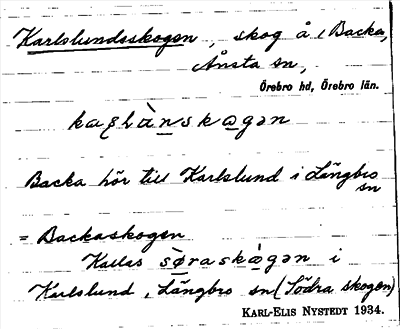 Karlslundsskogen, skog å 1 Backa,
Ånsta sn,
Örebro hd, Örebro län.
Backa hör till Karlslund i Längbro
sn
= Backaskogen
Kallas sø̀raskògən i
Karlslund, Längbro sn (Södra skogen)
KARL-ELIS NYSTEDT 1934.